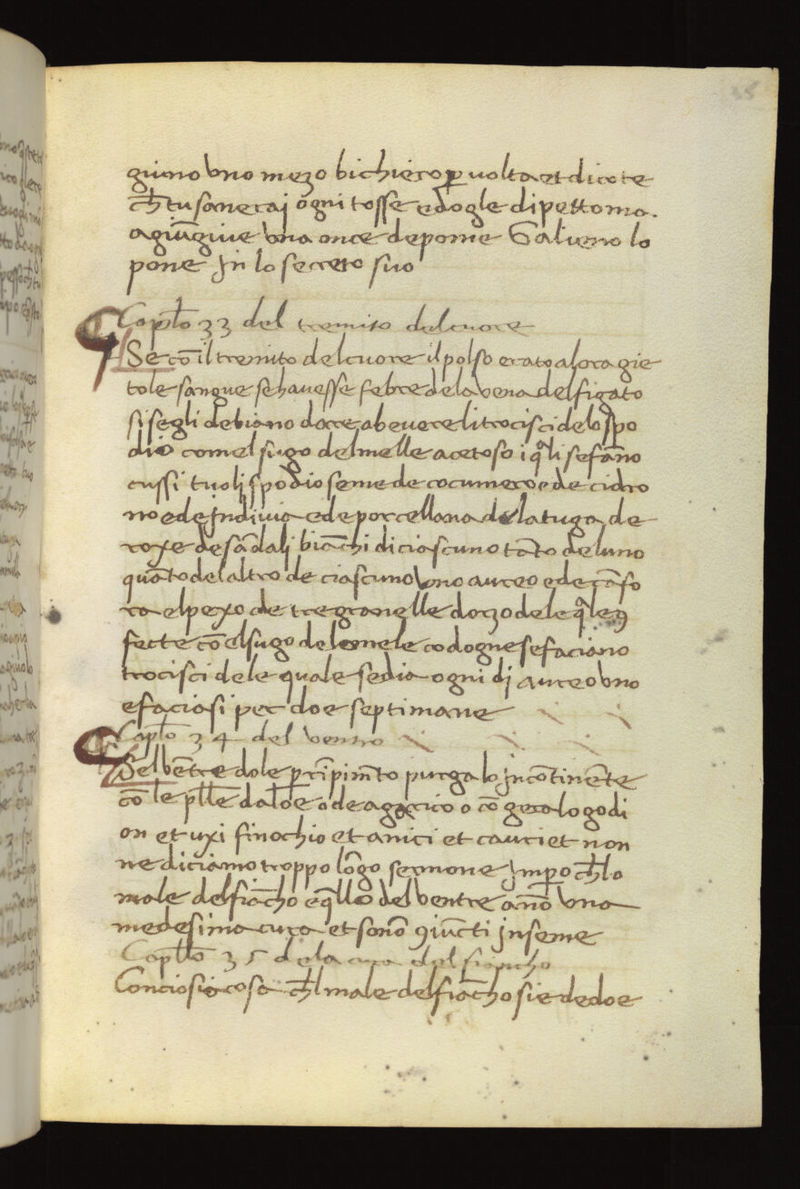 giuno uno mezo bichiero ꝑ uolta et dicote
ch̄ tu sanerai ogni tosse e dogle di petto ma.
agiūgiue una once de pome Galieno lo
pone in lo secreto suo
Caplo 33 del tremito del cuore
Se cō il tremito del cuore il polso erato alora gie
tole sangue se hauesse febre de la uena del figato
si se gli debiano dare a beuere li trocisci de lo spo
dio com el sugo del melle acetoso i q̄li se fāno
cussi tuoli spodio seme de cocumero e de cidro
no e de indiuia e de porcellana de latuga de
roxe de sādali biāchi di ciascuno tāto de luno
quāto del altro de ciascuno uno aureo e de cāfo
ra el pexo de tre granelle dorzo de le q̄le ꝯ
fecte cō el sugo de le mele codogne se faciano
trocisci de le quale se dia ogni di aureo uno
e faciasi per doe septimane
Caplo 34 del ventro
Sel uētre dole ꝑ rīpimēto purgalo incōtinēte
cō le pille daloe o de agarico o cō geralogodi
on et uxi finochio et anici et carui et non
ne diciamo troppo lōgo sermone imꝑo ch̄ lo
male del fiācho e q̄llo del ventre ānō una
medesima cura et sonō ꝯiūcti inseme
Caplo 35 de la cura del fiancho
Conciosia cosa ch̄ l male del fiācho sie de doe